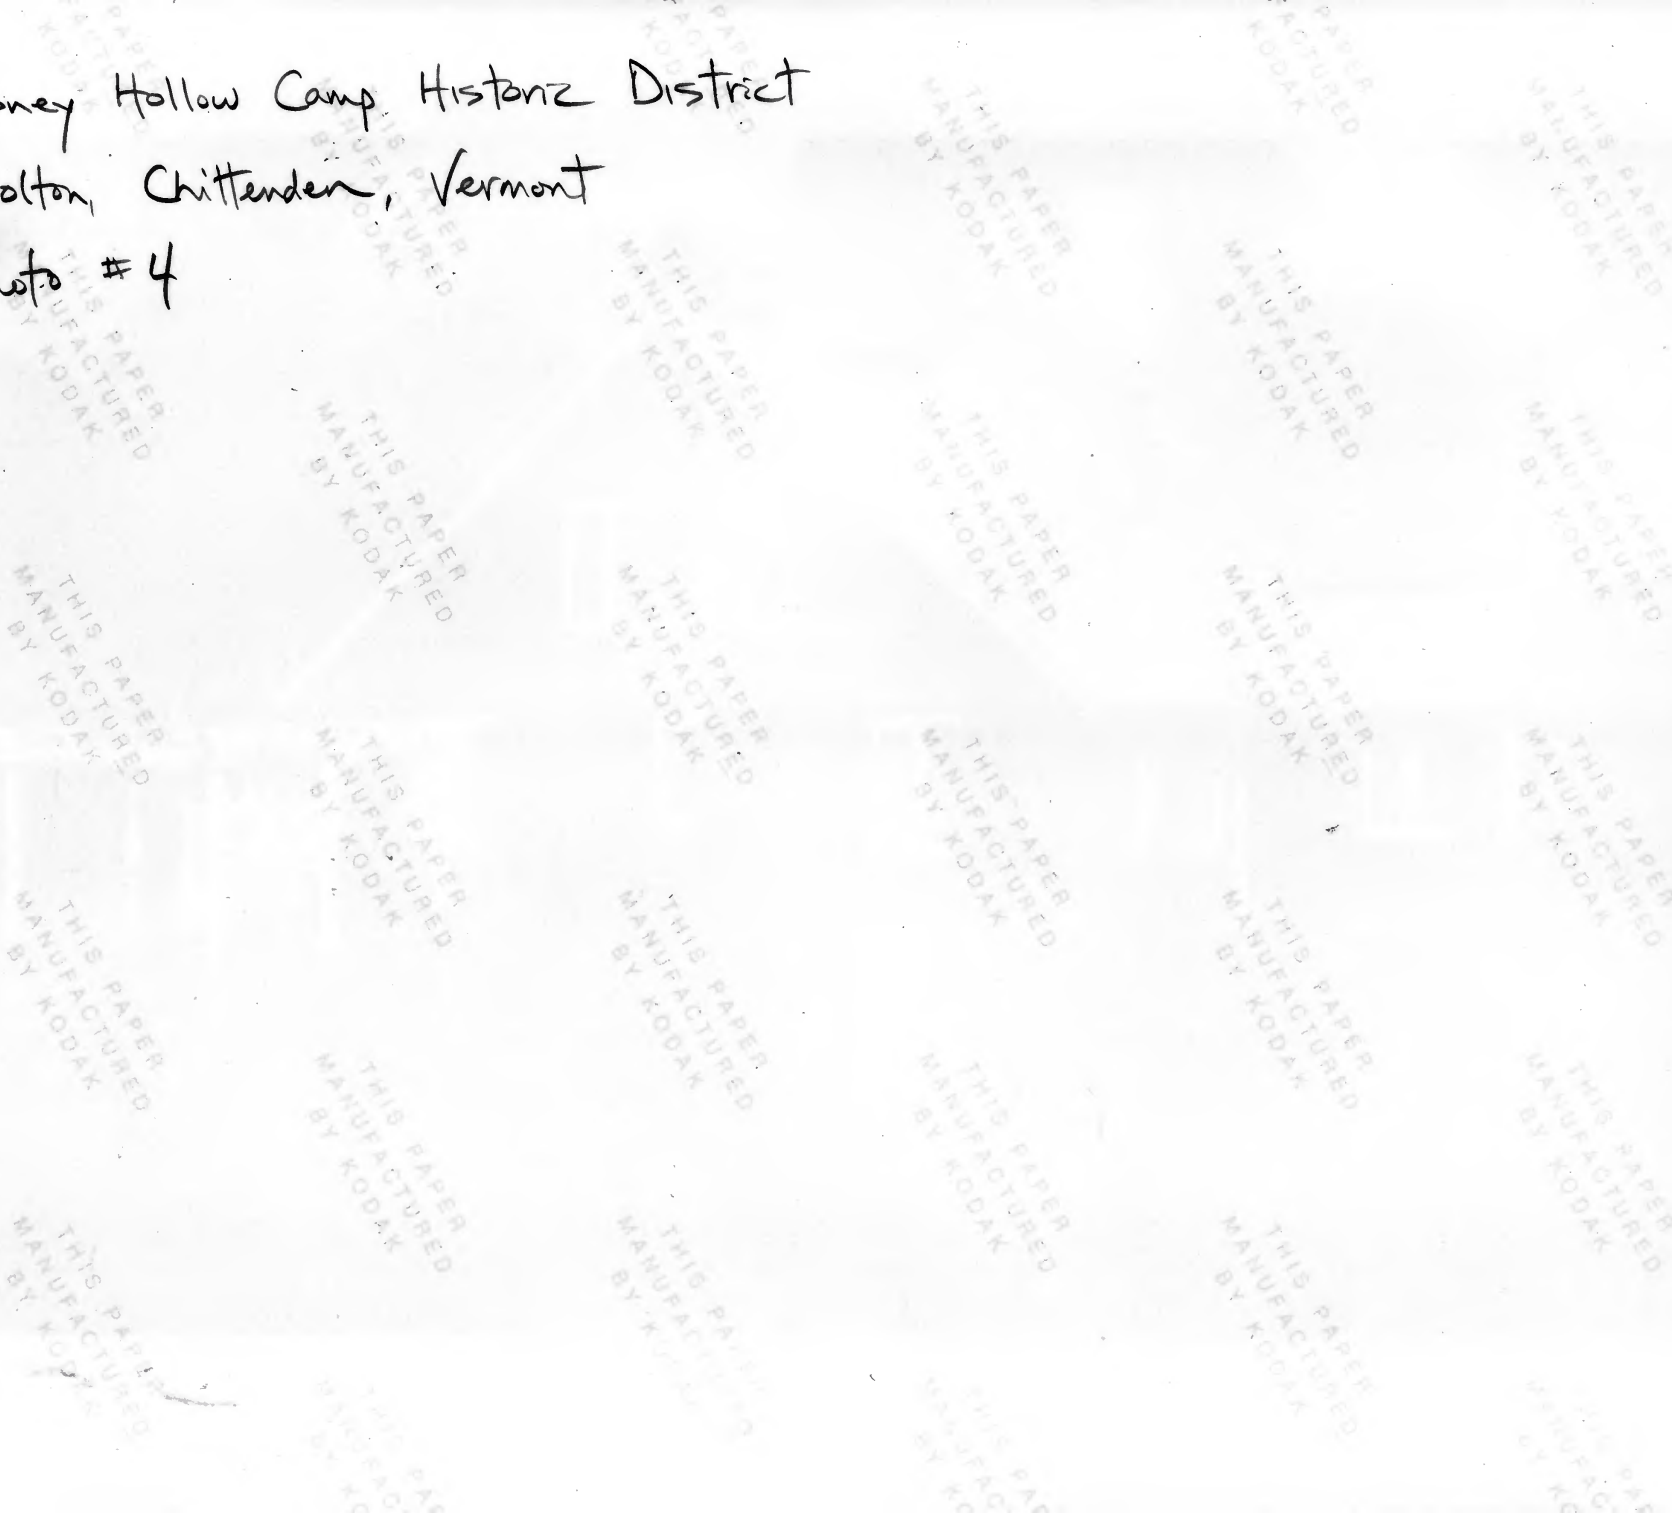 oney Hollow Camp Historic District
olton, Chittenden, Vermont
oto #4
THIS PAPER
MANUFACTURED
BY KODAK